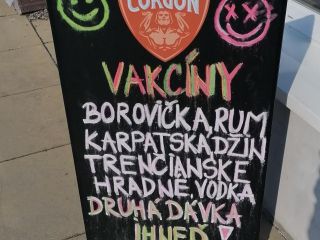 CORGOŇ
VAKCÍNY
BOROVIČKA, RUM
KARPATSKÁ DŽIN
TRENČIANSKE
HRADNÉ, VODKA
DRUHÁ DÁVKA
IHNEĎ!